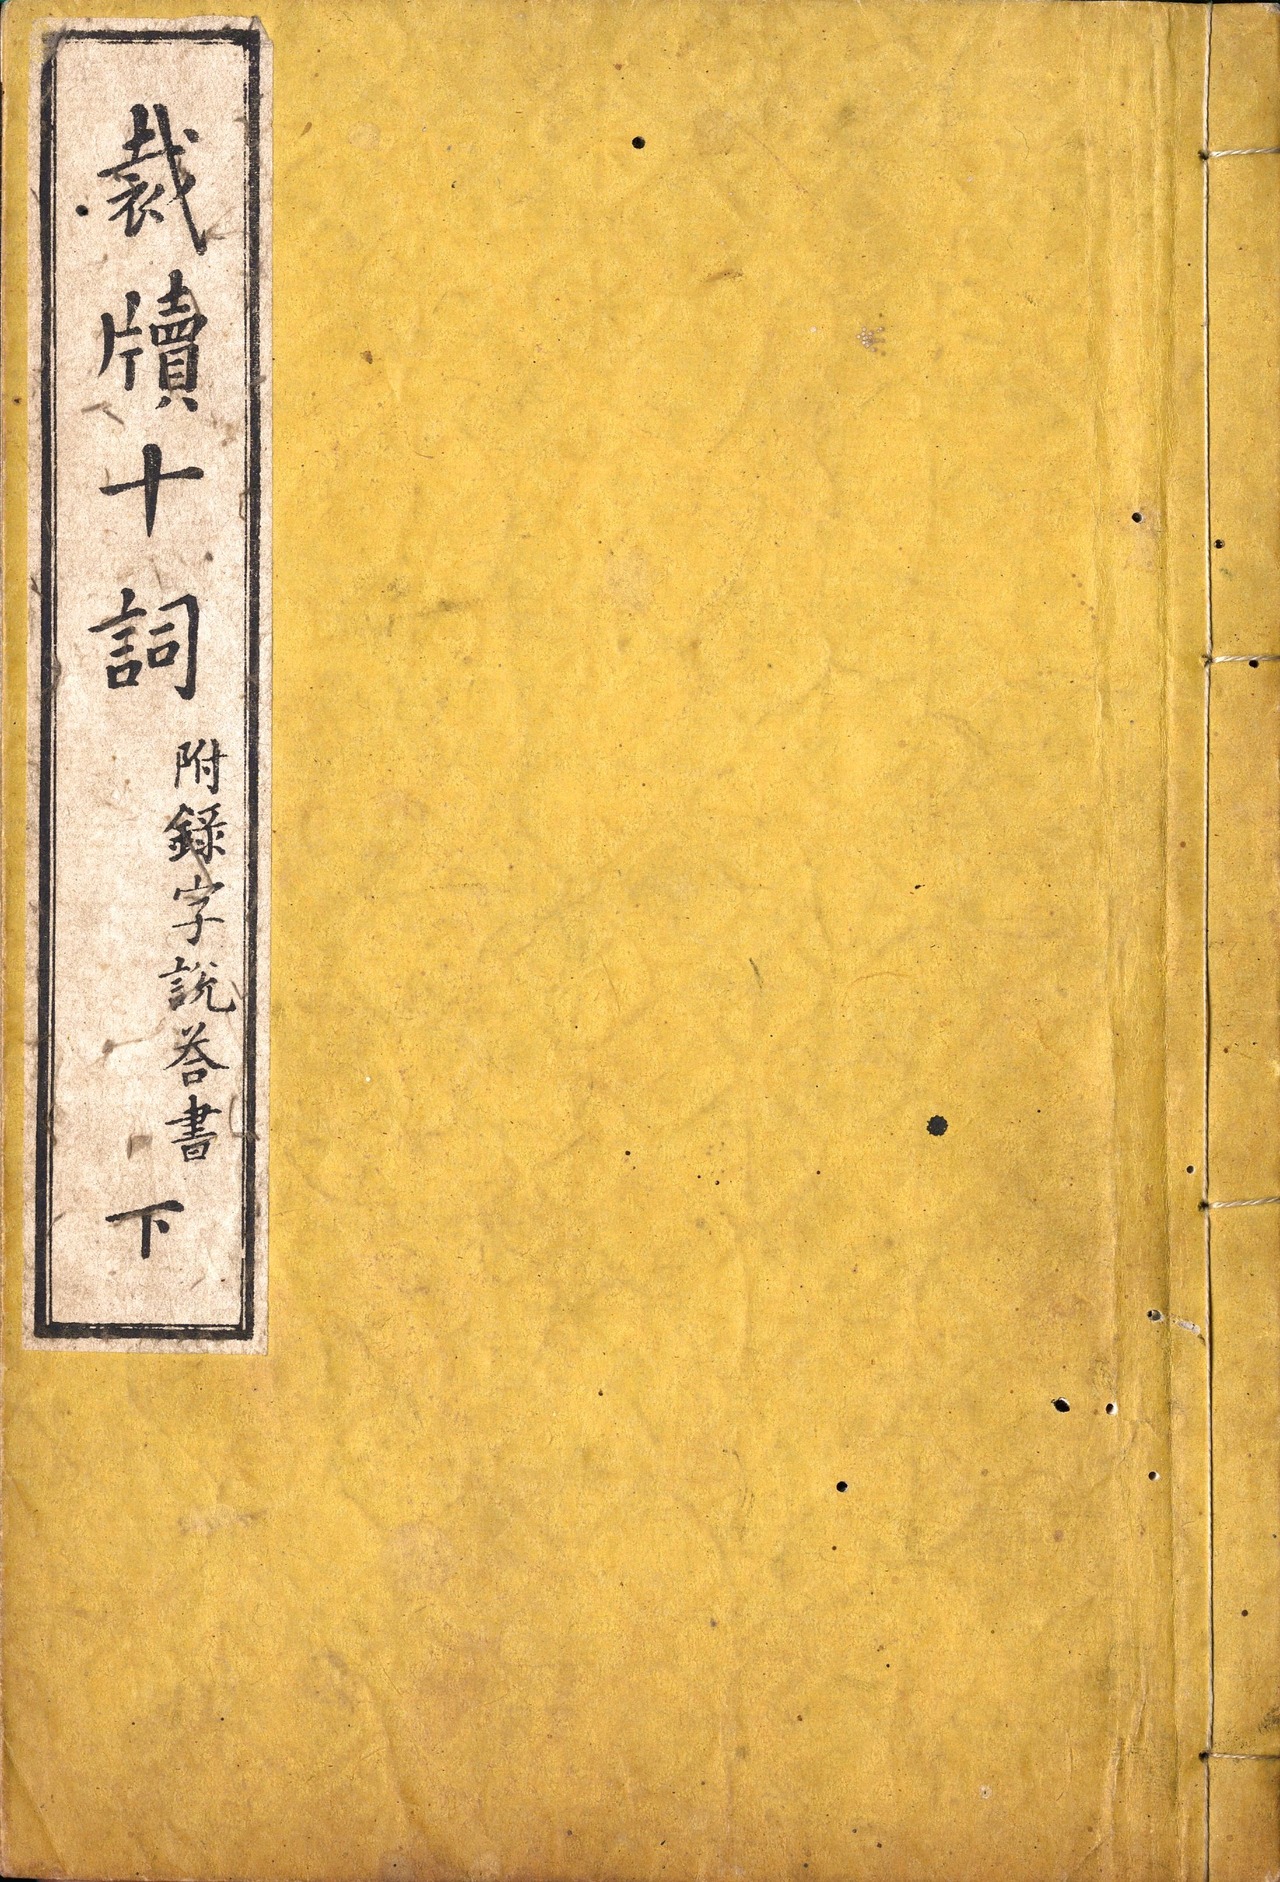 裁牘十詞
附録字說荅書
下